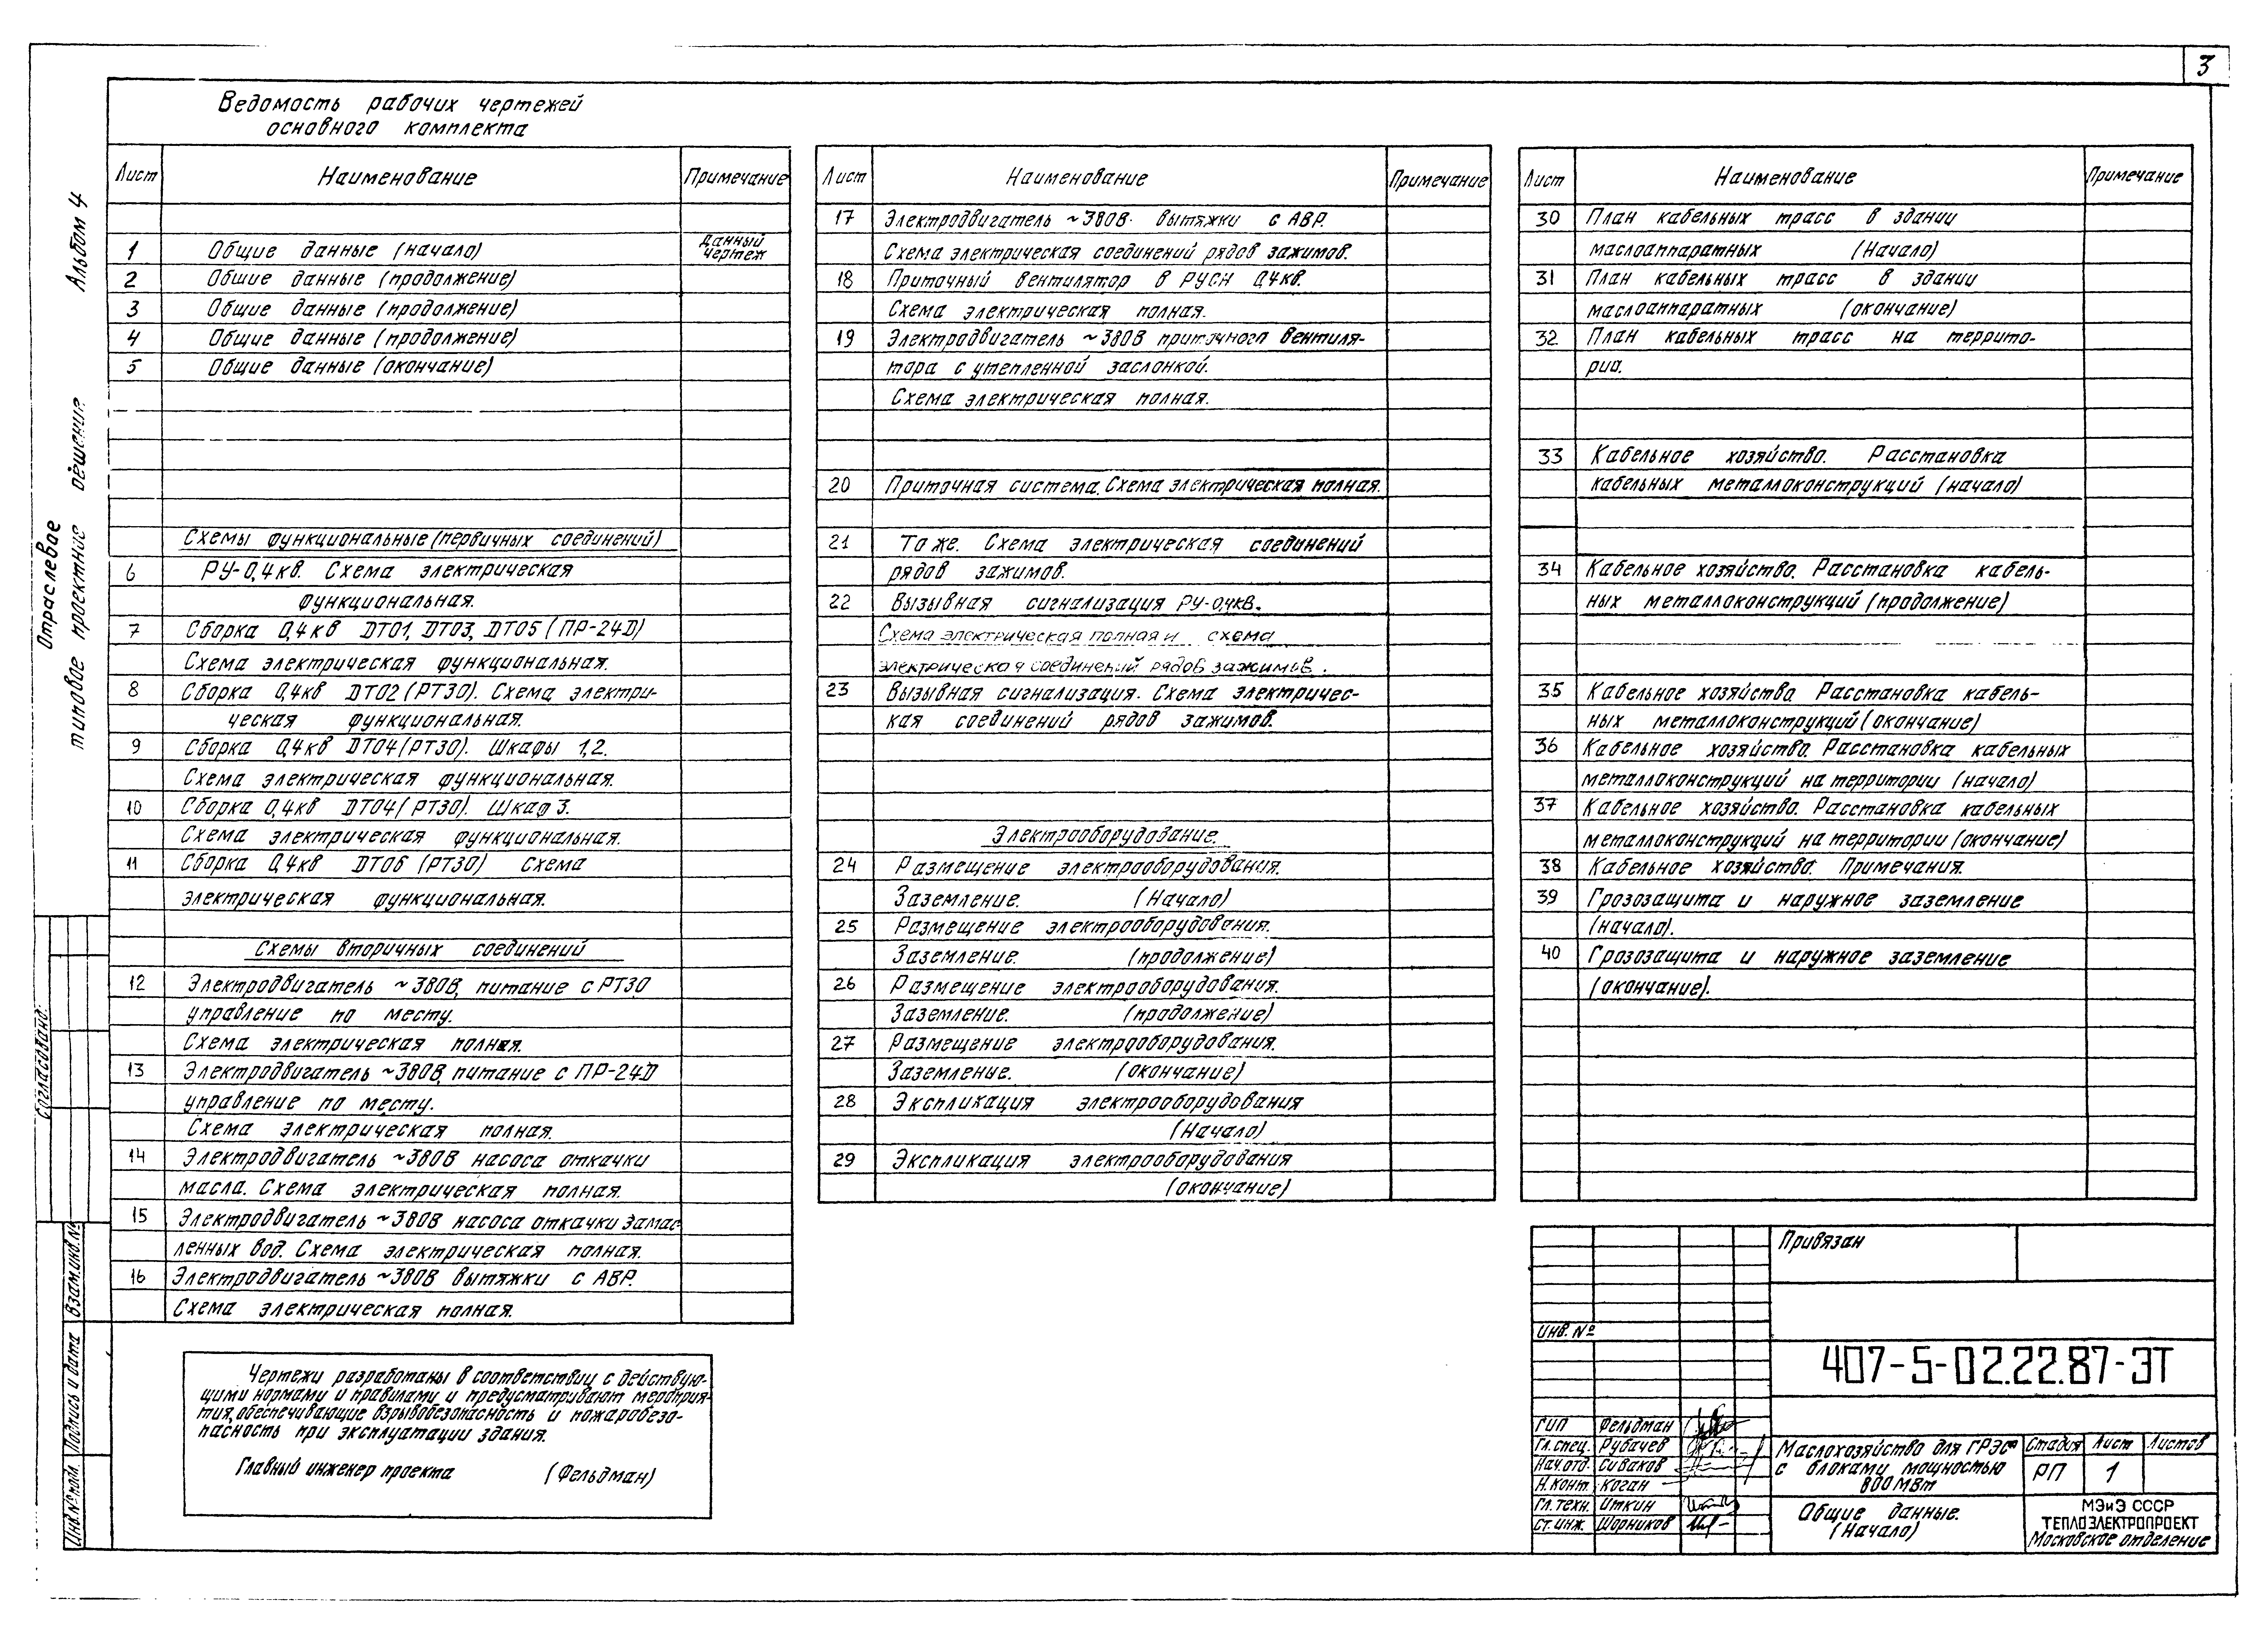 3
Ведомость рабочих чертежей
основного комплекта
Альбом 4
Отраслевое
типовое проектное решения
Лист Наименование Примечание
1 Общие данные (начало) Данный чертеж
2 Общие данные (продолжение)
3 Общие данные (продолжение)
4 Общие данные (продолжение)
5 Общие данные (окончание)
Схемы функциональные (первичных соединений)
6 РУ-0,4кв. Схема электрическая
функциональная.
7 Сборка 0,4кв DT01, DT03, DT05 (ПР-24D)
Схема электрическая функциональная.
8 Сборка 0,4кв DT02 (РТ30). Схема электри-
ческая функциональная.
9 Сборка 0,4кв DT04 (РТ30). Шкафы 1,2.
Схема электрическая функциональная.
10 Сборка 0,4кв DT04 (РТ30). Шкаф 3.
Схема электрическая функциональная.
11 Сборка 0,4кв DT06 (РТ30) Схема
электрическая функциональная.
Схемы вторичных соединений
12 Электродвигатель ~380В, питание с РТ30
управление по месту.
Схема электрическая полная.
13 Электродвигатель ~380В, питание с ПР-24D
управление по месту.
Схема электрическая полная.
14 Электродвигатель ~380В насоса откачки
масла. Схема электрическая полная.
15 Электродвигатель ~380В насоса откачки замас
ленных вод. Схема электрическая полная.
16 Электродвигатель ~380В вытяжки с АВР.
Схема электрическая полная.
Лист Наименование Примечание
17 Электродвигатель ~380В вытяжки с АВР.
Схема электрическая соединений рядов зажимов.
18 Приточный вентилятор в РУСН 0,4кв.
Схема электрическая полная.
19 Электродвигатель ~380В приточного вентиля-
тора с утепленной заслонкой.
Схема электрическая полная.
20 Приточная система. Схема электрическая полная.
21 То же. Схема электрическая соединений
рядов зажимов.
22 Вызывная сигнализация РУ-0,4кв.
Схема электрическая полная и схема
электрическая соединений рядов зажимов.
23 Вызывная сигнализация. Схема электричес-
кая соединений рядов зажимов.
Электрооборудование.
24 Размещение электрооборудования.
Заземление. (Начало)
25 Размещение электрооборудования.
Заземление. (продолжение)
26 Размещение электрооборудования.
Заземление. (продолжение)
27 Размещение электрооборудования.
Заземление. (окончание)
28 Экспликация электрооборудования
(Начало)
29 Экспликация электрооборудования
(окончание)
Лист Наименование Примечание
30 План кабельных трасс в здании
маслоаппаратных (Начало)
31 План кабельных трасс в здании
маслоаппаратных (окончание)
32 План кабельных трасс на террито-
рии.
33 Кабельное хозяйство. Расстановка
кабельных металлоконструкций (начало)
34 Кабельное хозяйство. Расстановка кабель-
ных металлоконструкций (продолжение)
35 Кабельное хозяйство. Расстановка кабель-
ных металлоконструкций (окончание)
36 Кабельное хозяйство. Расстановка кабельных
металлоконструкций на территории (начало)
37 Кабельное хозяйство. Расстановка кабельных
металлоконструкций на территории (окончание)
38 Кабельное хозяйство. Примечания.
39 Грозозащита и наружное заземление
(начало).
40 Грозозащита и наружное заземление
(окончание).
Согласовано:
Инв.№ подл. Подпись и дата Взам.инв.№
Чертежи разработаны в соответствии с действую-
щими нормами и правилами и предусматривают мероприя-
тия, обеспечивающие взрывобезопасность и пожаробезо-
пасность при эксплуатации здания.
Главный инженер проекта (Фельдман)
Привязан
Инв. №
407-5-02.22.87-ЭТ
ГИП Фельдман
Гл.спец. Рубачев
Нач.отд. Сиваков
Н.конт. Коган
Гл.техн. Иткин
Ст.инж. Шорников
Маслохозяйство для ГРЭС
с блоками мощностью
800 МВт
Стадия Лист Листов
РП 1
Общие данные.
(Начало)
МЭиЭ СССР
ТЕПЛОЭЛЕКТРОПРОЕКТ
Московское отделение